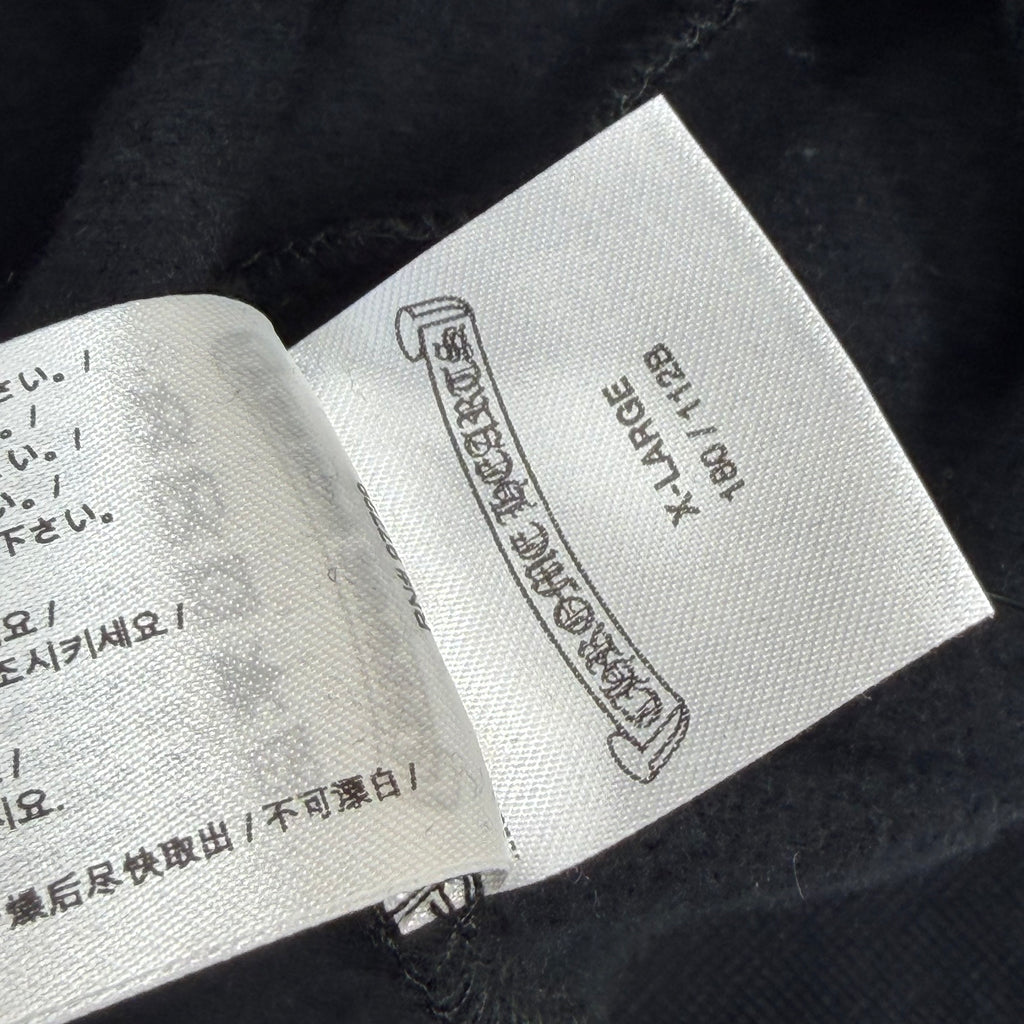 さい。/
。/
い。/
い。/
下さい。
요 /
조시키세요 /
/
시요.
燥后尽快取出 / 不可漂白 /
CHROME HEARTS
X-LARGE
180 / 112B